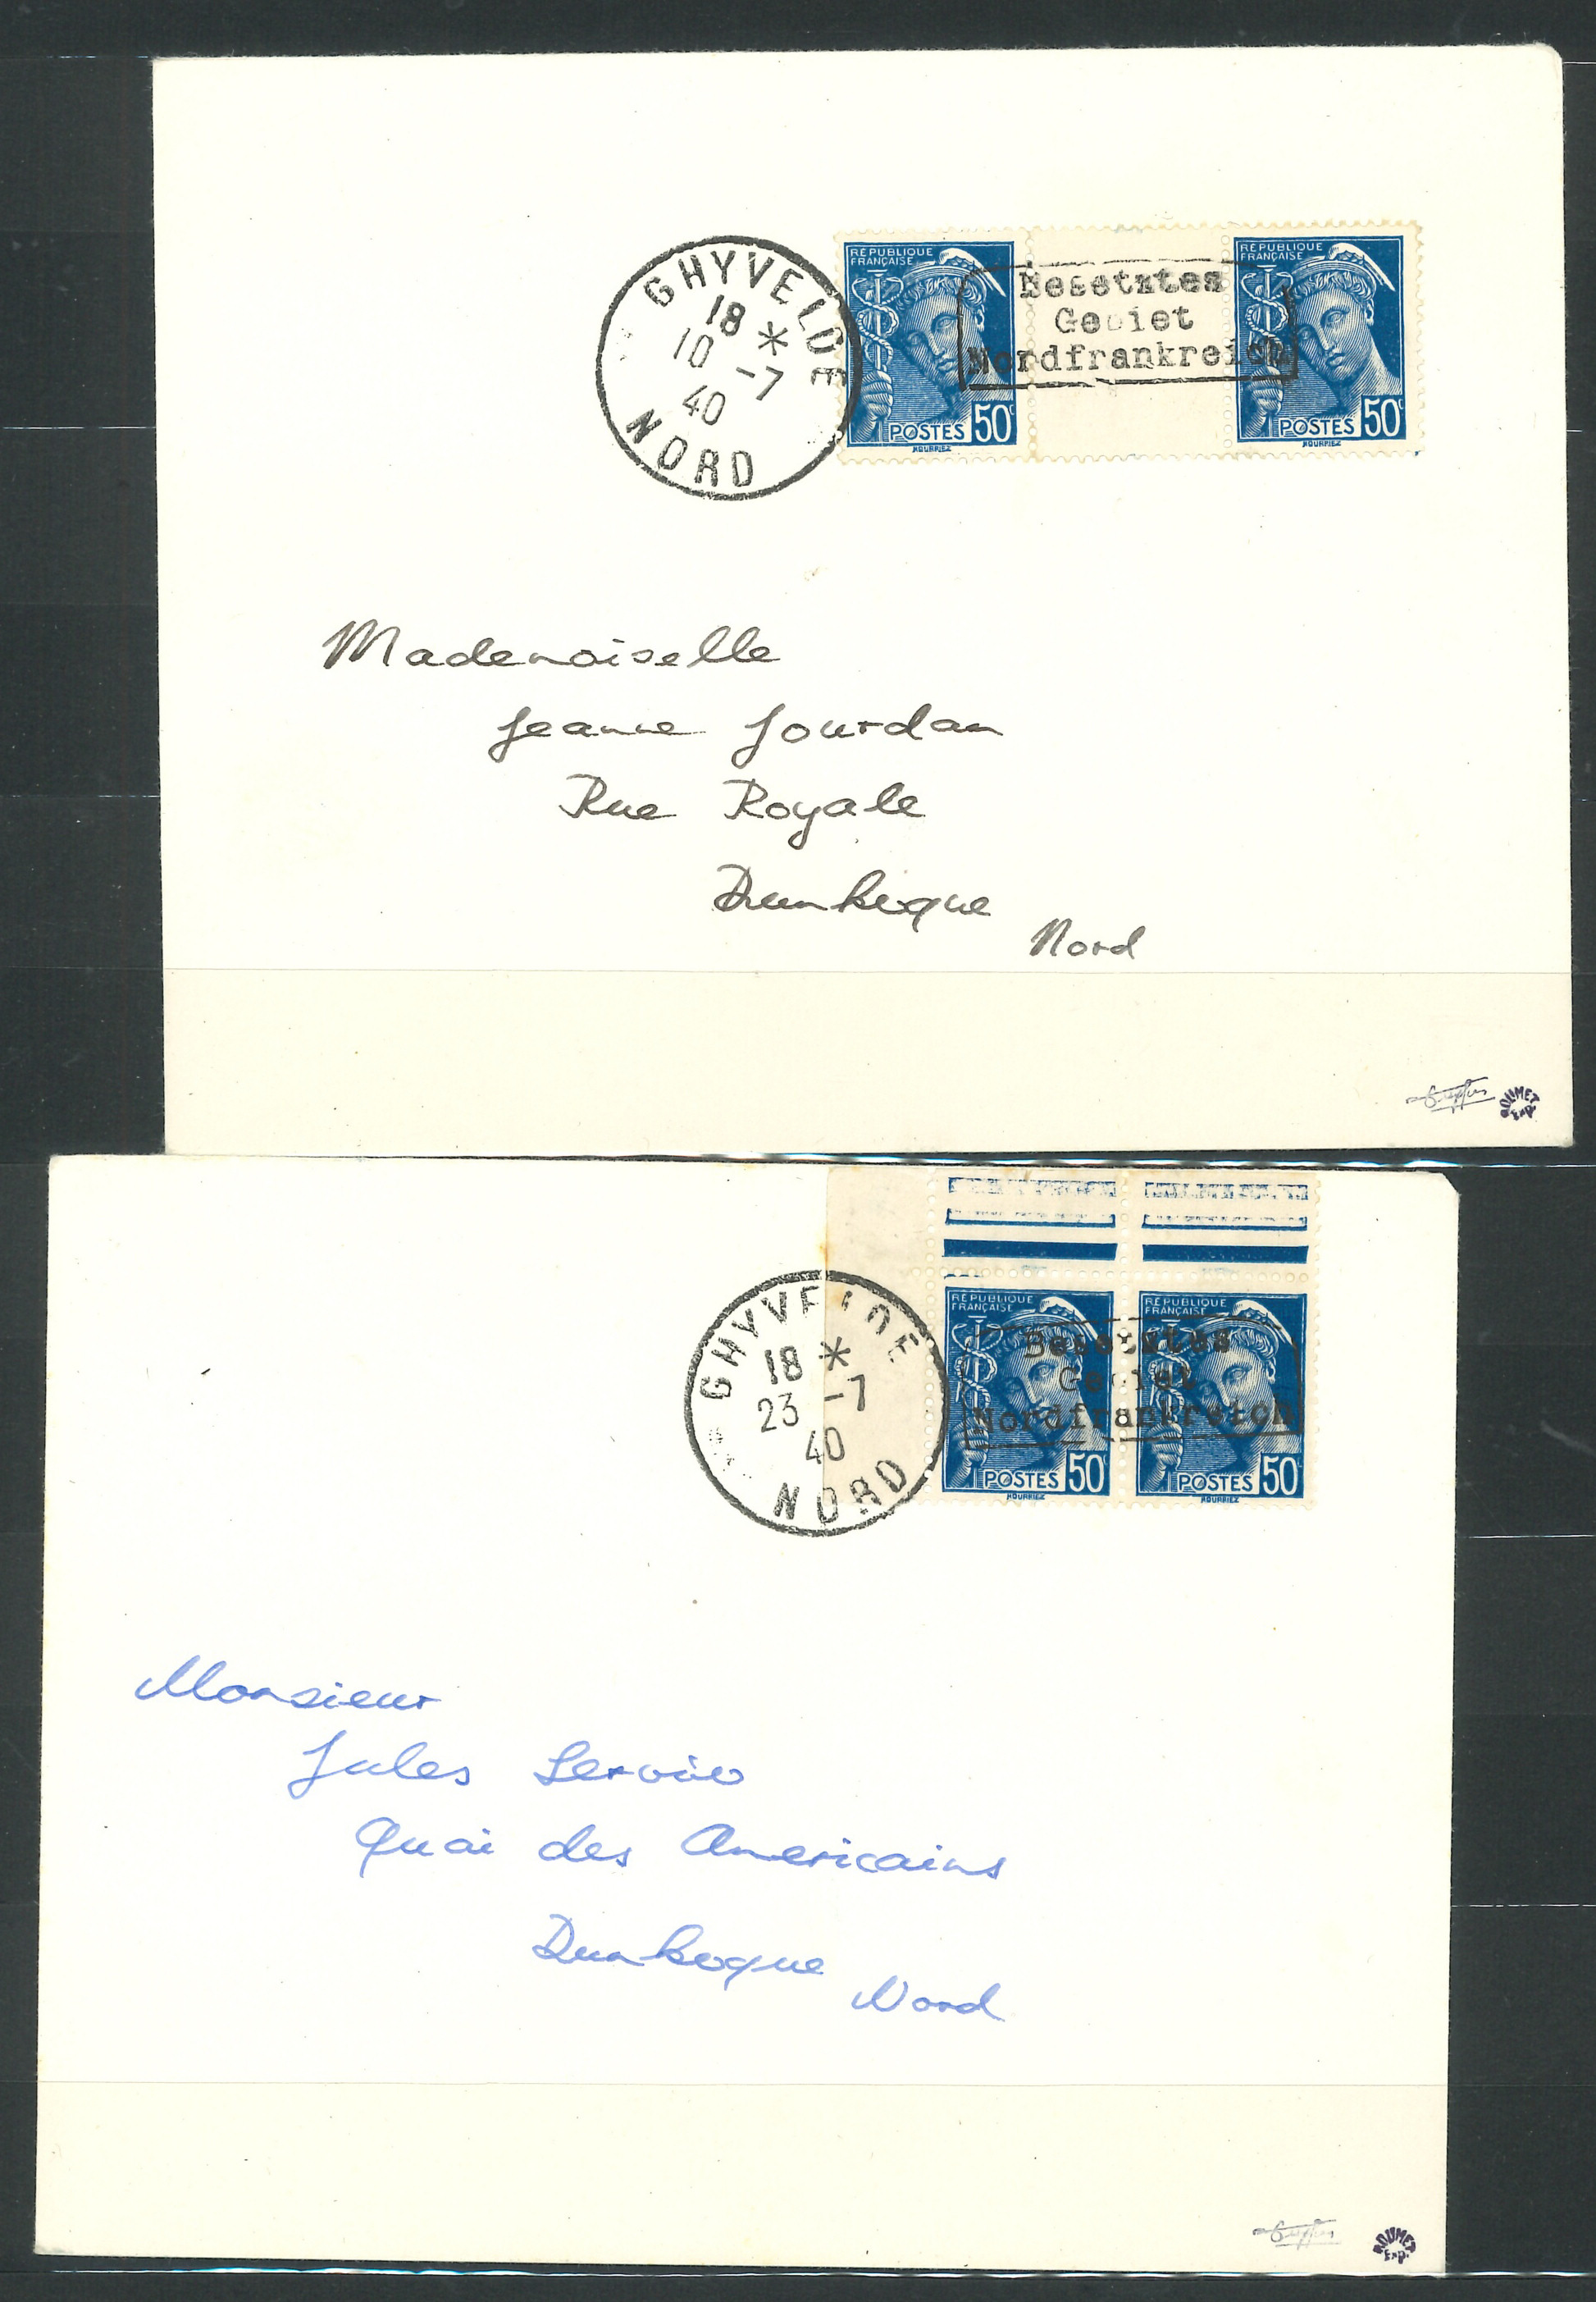 GHYVELDE
18 *
10 -7
40
NORD
RÉPUBLIQUE
FRANÇAISE
POSTES 50c
HOURRIEZ
RÉPUBLIQUE
FRANÇAISE
POSTES 50c
HOURRIEZ
Besetztes
Gebiet
Nordfrankreich
Mademoiselle
Jeanne Jourdan
Rue Royale
Dunkerque
Nord
ROUMET
Exp.
GHYVELDE
18 *
23 -7
40
NORD
RÉPUBLIQUE
FRANÇAISE
POSTES 50c
HOURRIEZ
RÉPUBLIQUE
FRANÇAISE
POSTES 50c
HOURRIEZ
Besetztes
Gebiet
Nordfrankreich
Monsieur
Jules
Quai des Americains
Dunkerque
Nord
ROUMET
Exp.